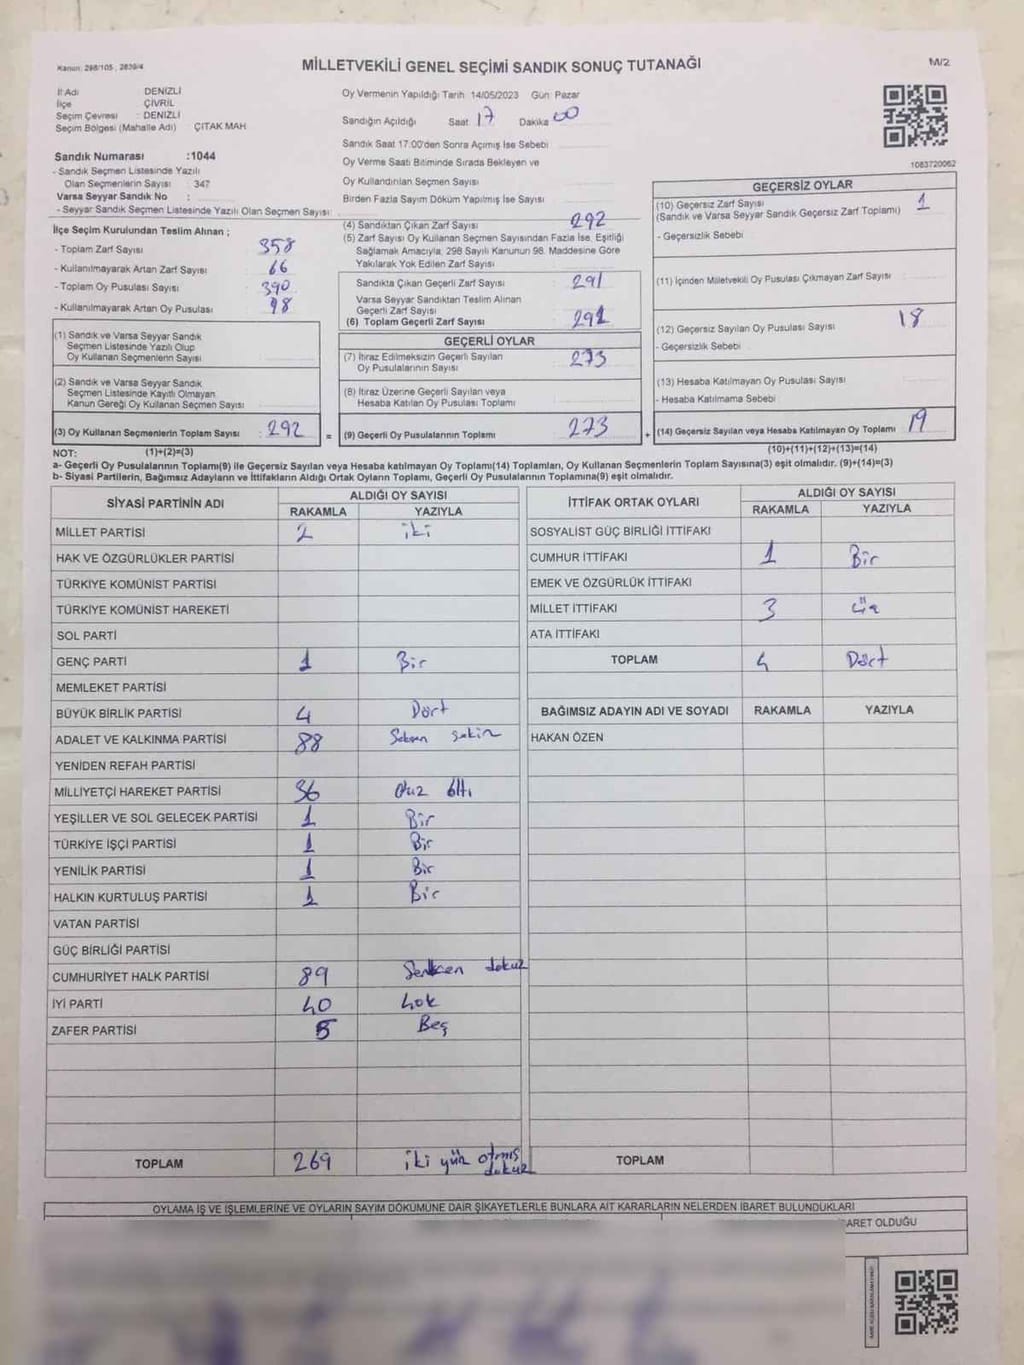 Kanun: 298/105, 2839/4
MİLLETVEKİLİ GENEL SEÇİMİ SANDIK SONUÇ TUTANAĞI
M/2
İl Adı DENİZLİ
İlçe ÇİVRİL
Seçim Çevresi : DENİZLİ
Seçim Bölgesi (Mahalle Adı) ÇITAK MAH
Sandık Numarası :1044
- Sandık Seçmen Listesinde Yazılı
Olan Seçmenlerin Sayısı : 347
Varsa Seyyar Sandık No :
- Seyyar Sandık Seçmen Listesinde Yazılı Olan Seçmen Sayısı:
İlçe Seçim Kurulundan Teslim Alınan ;
- Toplam Zarf Sayısı 358
- Kullanılmayarak Artan Zarf Sayısı 66
- Toplam Oy Pusulası Sayısı 390
- Kullanılmayarak Artan Oy Pusulası 98
(1) Sandık ve Varsa Seyyar Sandık
Seçmen Listesinde Yazılı Olup
Oy Kullanan Seçmenlerin Sayısı
(2) Sandık ve Varsa Seyyar Sandık
Seçmen Listesinde Kayıtlı Olmayan
Kanun Gereği Oy Kullanan Seçmen Sayısı :
(3) Oy Kullanan Seçmenlerin Toplam Sayısı : 292 =
Oy Vermenin Yapıldığı Tarih 14/05/2023 Gün: Pazar
Sandığın Açıldığı Saat 17 Dakika 00
Sandık Saat 17.00'den Sonra Açımış İse Sebebi
Oy Verme Saati Bitiminde Sırada Bekleyen ve
Oy Kullandırılan Seçmen Sayısı
Birden Fazla Sayım Döküm Yapılmış İse Sayısı
(4) Sandıktan Çıkan Zarf Sayısı 292
(5) Zarf Sayısı Oy Kullanan Seçmen Sayısından Fazla İse, Eşitliği
Sağlamak Amacıyla, 298 Sayılı Kanunun 98. Maddesine Göre
Yakılarak Yok Edilen Zarf Sayısı
Sandıkta Çıkan Geçerli Zarf Sayısı : 291
Varsa Seyyar Sandıktan Teslim Alınan
Geçerli Zarf Sayısı
(6) Toplam Geçerli Zarf Sayısı 291
GEÇERLİ OYLAR
(7) İtiraz Edilmeksizin Geçerli Sayılan
Oy Pusulalarının Sayısı : 273
(8) İtiraz Üzerine Geçerli Sayılan veya
Hesaba Katılan Oy Pusulası Toplamı
(9) Geçerli Oy Pusulalarının Toplamı : 273 +
1083720062
GEÇERSİZ OYLAR
(10) Geçersiz Zarf Sayısı 1
(Sandık ve Varsa Seyyar Sandık Geçersiz Zarf Toplamı)
- Geçersizlik Sebebi
(11) İçinden Milletvekili Oy Pusulası Çıkmayan Zarf Sayısı
(12) Geçersiz Sayılan Oy Pusulası Sayısı 18
- Geçersizlik Sebebi
(13) Hesaba Katılmayan Oy Pusulası Sayısı
- Hesaba Katılmama Sebebi
(14) Geçersiz Sayılan veya Hesaba Katılmayan Oy Toplamı 19
NOT: (1)+(2)=(3) (10)+(11)+(12)+(13)=(14)
a- Geçerli Oy Pusulalarının Toplamı(9) ile Geçersiz Sayılan veya Hesaba katılmayan Oy Toplamı(14) Toplamları, Oy Kullanan Seçmenlerin Toplam Sayısına(3) eşit olmalıdır. (9)+(14)=(3)
b- Siyasi Partilerin, Bağımsız Adayların ve İttifakların Aldığı Ortak Oyların Toplamı, Geçerli Oy Pusulalarının Toplamına(9) eşit olmalıdır.
SİYASİ PARTİNİN ADI ALDIĞI OY SAYISI
RAKAMLA YAZIYLA
MİLLET PARTİSİ 2 iki
HAK VE ÖZGÜRLÜKLER PARTİSİ
TÜRKİYE KOMÜNİST PARTİSİ
TÜRKİYE KOMÜNİST HAREKETİ
SOL PARTİ
GENÇ PARTİ 1 Bir
MEMLEKET PARTİSİ
BÜYÜK BİRLİK PARTİSİ 4 Dört
ADALET VE KALKINMA PARTİSİ 88 Seksen sekiz
YENİDEN REFAH PARTİSİ
MİLLİYETÇİ HAREKET PARTİSİ 36 Otuz altı
YEŞİLLER VE SOL GELECEK PARTİSİ 1 Bir
TÜRKİYE İŞÇİ PARTİSİ 1 Bir
YENİLİK PARTİSİ 1 Bir
HALKIN KURTULUŞ PARTİSİ 1 Bir
VATAN PARTİSİ
GÜÇ BİRLİĞİ PARTİSİ
CUMHURİYET HALK PARTİSİ 89 Seksen dokuz
İYİ PARTİ 40 kırk
ZAFER PARTİSİ 5 Beş
TOPLAM 269 iki yüz otmış dokuz
İTTİFAK ORTAK OYLARI ALDIĞI OY SAYISI
RAKAMLA YAZIYLA
SOSYALİST GÜÇ BİRLİĞİ İTTİFAKI
CUMHUR İTTİFAKI 1 Bir
EMEK VE ÖZGÜRLÜK İTTİFAKI
MİLLET İTTİFAKI 3 Üç
ATA İTTİFAKI
TOPLAM 4 Dört
BAĞIMSIZ ADAYIN ADI VE SOYADI RAKAMLA YAZIYLA
HAKAN ÖZEN
TOPLAM
OYLAMA İŞ VE İŞLEMLERİNE VE OYLARIN SAYIM DÖKÜMÜNE DAİR ŞİKAYETLERLE BUNLARA AİT KARARLARIN NELERDEN İBARET BULUNDUKLARI
BARET OLDUĞU